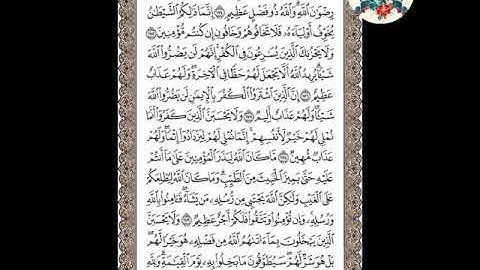 رِضْوَانَ ٱللَّهِ وَٱللَّهُ ذُو فَضْلٍ عَظِيمٍ ۝١٧٤ إِنَّمَا ذَٰلِكُمُ ٱلشَّيْطَٰنُ
يُخَوِّفُ أَوْلِيَآءَهُۥ فَلَا تَخَافُوهُمْ وَخَافُونِ إِن كُنتُم مُّؤْمِنِينَ ۝١٧٥
وَلَا يَحْزُنكَ ٱلَّذِينَ يُسَٰرِعُونَ فِى ٱلْكُفْرِ إِنَّهُمْ لَن يَضُرُّوا۟ ٱللَّهَ
شَيْـًٔا يُرِيدُ ٱللَّهُ أَلَّا يَجْعَلَ لَهُمْ حَظًّا فِى ٱلْءَاخِرَةِ وَلَهُمْ عَذَابٌ
عَظِيمٌ ۝١٧٦ إِنَّ ٱلَّذِينَ ٱشْتَرَوُا۟ ٱلْكُفْرَ بِٱلْإِيمَٰنِ لَن يَضُرُّوا۟ ٱللَّهَ
شَيْـًٔا وَلَهُمْ عَذَابٌ أَلِيمٌ ۝١٧٧ وَلَا يَحْسَبَنَّ ٱلَّذِينَ كَفَرُوٓا۟ أَنَّمَا
نُمْلِى لَهُمْ خَيْرٌ لِّأَنفُسِهِمْ إِنَّمَا نُمْلِى لَهُمْ لِيَزْدَادُوٓا۟ إِثْمًا وَلَهُمْ
عَذَابٌ مُّهِينٌ ۝١٧٨ مَّا كَانَ ٱللَّهُ لِيَذَرَ ٱلْمُؤْمِنِينَ عَلَىٰ مَآ أَنتُمْ
عَلَيْهِ حَتَّىٰ يَمِيزَ ٱلْخَبِيثَ مِنَ ٱلطَّيِّبِ وَمَا كَانَ ٱللَّهُ لِيُطْلِعَكُمْ
عَلَى ٱلْغَيْبِ وَلَٰكِنَّ ٱللَّهَ يَجْتَبِى مِن رُّسُلِهِۦ مَن يَشَآءُ فَـَٔامِنُوا۟ بِٱللَّهِ
وَرُسُلِهِۦ وَإِن تُؤْمِنُوا۟ وَتَتَّقُوا۟ فَلَكُمْ أَجْرٌ عَظِيمٌ ۝١٧٩ وَلَا يَحْسَبَنَّ
ٱلَّذِينَ يَبْخَلُونَ بِمَآ ءَاتَىٰهُمُ ٱللَّهُ مِن فَضْلِهِۦ هُوَ خَيْرًا لَّهُم
بَلْ هُوَ شَرٌّ لَّهُمْ سَيُطَوَّقُونَ مَا بَخِلُوا۟ بِهِۦ يَوْمَ ٱلْقِيَٰمَةِ وَلِلَّهِ